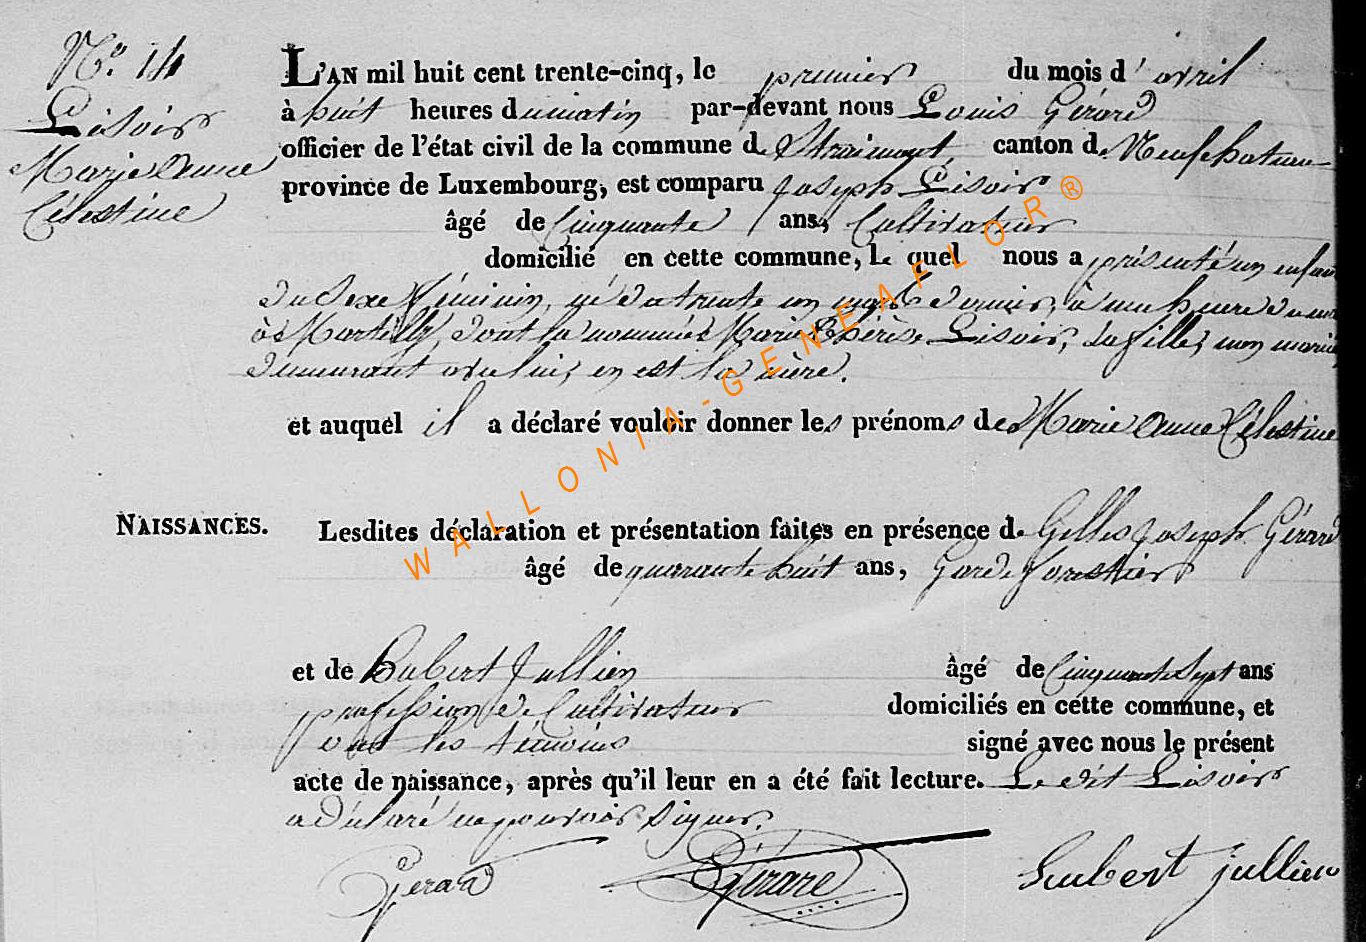 N.° 14
Lisoir
Marie Anne
Célestine
L'AN mil huit cent trente-cinq, le premier du mois d' avril
à huit heures du matin par-devant nous Louis Gérard
officier de l'état civil de la commune de Straimont, canton de Neufchateau
province de Luxembourg, est comparu Joseph Lisoir
âgé de Cinquante ans, Cultivateur
domicilié en cette commune, le quel nous a présenté un enfant
du Sexe féminin, né du trente un mars dernier, à une heure du
à Martilly, dont la nommée Marie Thérèse Lisoir, sa fille, non mariée
demeurant avec lui, en est la mère.
et auquel il a déclaré vouloir donner les prénoms de Marie Anne Célestine
NAISSANCES.
Lesdites déclaration et présentation faites en présence de Gilles Joseph Gérard
âgé de quarante huit ans, Garde forestier
et de Hubert Jullien âgé de Cinquante Sept ans
profession de Cultivateur domiciliés en cette commune, et
ont les témoins signé avec nous le présent
acte de naissance, après qu'il leur en a été fait lecture. Le dit Lisoir
a déclaré ne pouvoir signer.
Gerard Gérard Hubert Jullien
WALLONIA-GENEAFLOR®